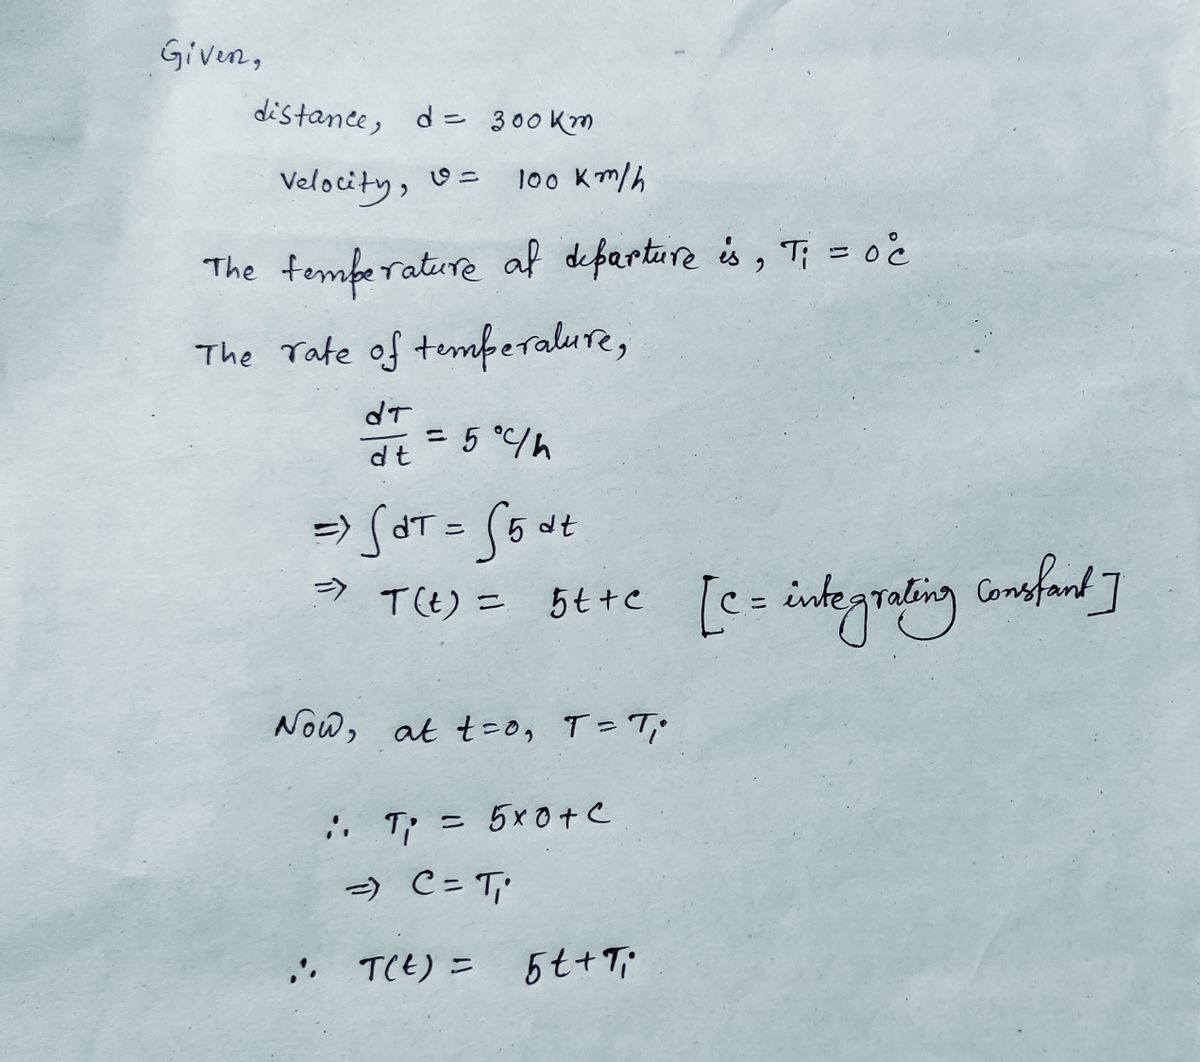 Given,
distance, d = 300 Km
Velocity, v = 100 Km/h
The temperature at departure is, Ti = 0°C
The rate of temperature,
dT/dt = 5 °C/h
⇒ ∫dT = ∫5 dt
⇒ T(t) = 5t + c [c = integrating constant]
Now, at t=0, T = Ti
∴ Ti = 5×0+C
⇒ C = Ti
∴ T(t) = 5t + Ti